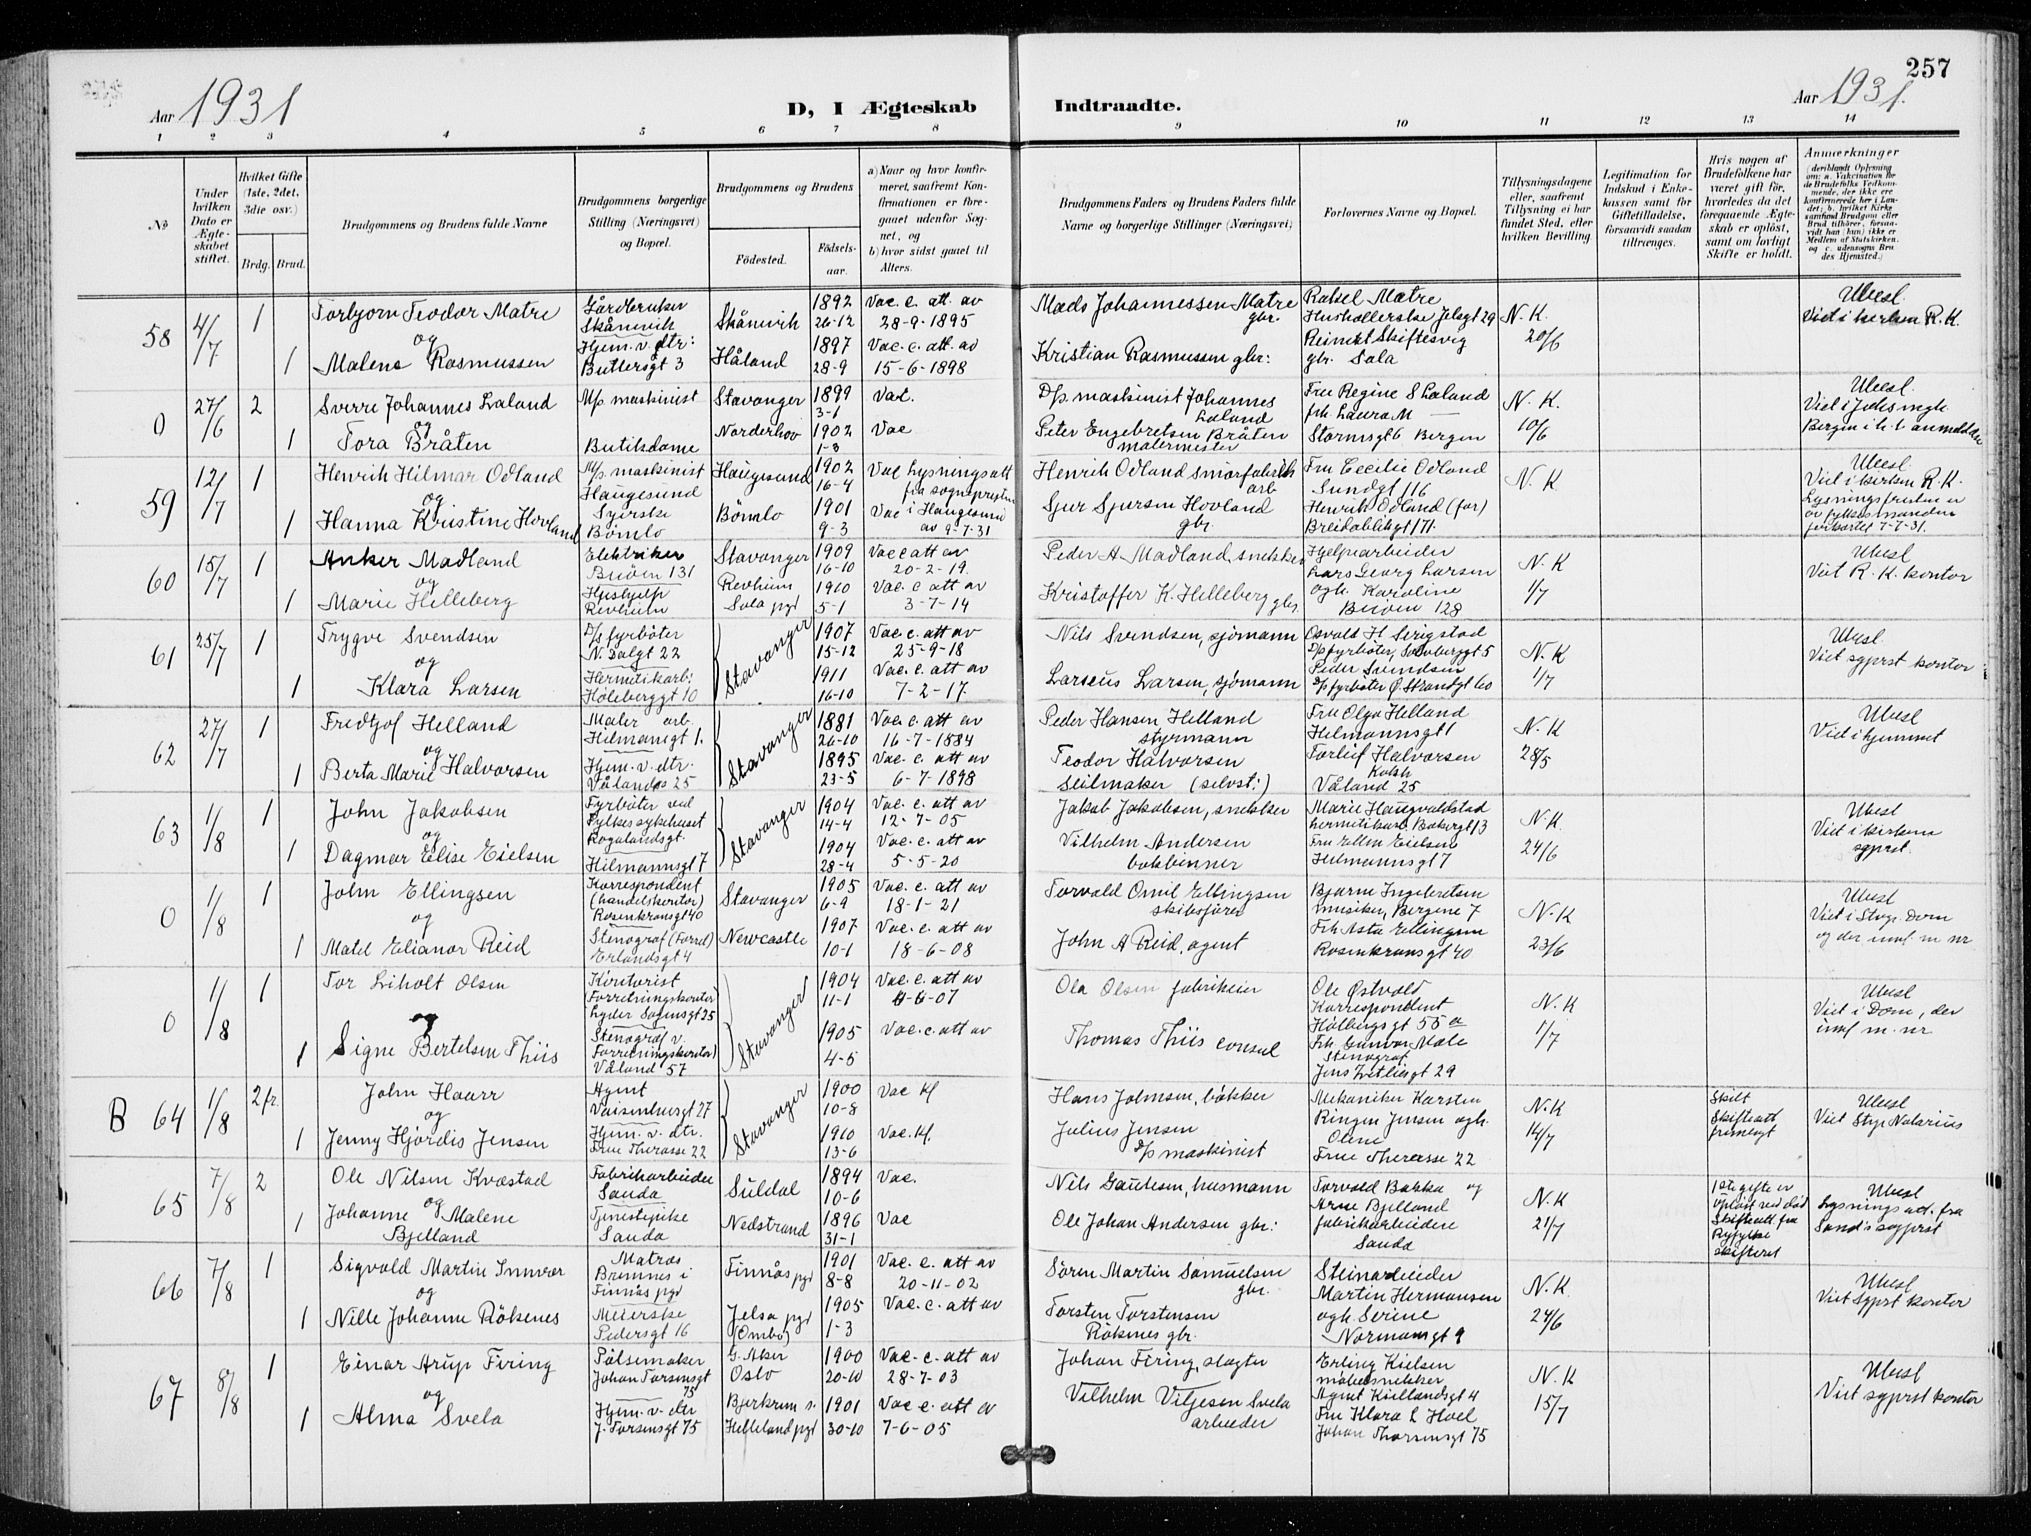 257
Aar 1931
D, I Ægteskab Indtraadte.
Aar 1931.
1 2 3 4 5 6 7 8 9 10 11 12 13 14
No
Under hvilken Dato er Ægteskabet stiftet.
Hvilket Gifte (1ste, 2det, 3die osv.)
Brdg. Brud.
Brudgommens og Brudens fulde Navne
Brudgommens borgerlige Stilling (Næringsvei) og Bopæl.
Brudgommens og Brudens
Fødested.
Fødsels-aar.
a) Naar og hvor konfirmeret, saafremt Konfirmationen er foregaaet udenfor Sognet, og
b) hvor sidst gaaet til Alters.
Brudgommens Faders og Brudens Faders fulde Navne og borgerlige Stillinger (Næringsvei)
Forlovernes Navne og Bopæl.
Tillysningsdagene eller, saafremt Tillysning ei har fundet Sted, efter hvilken Bevilling.
Legitimation for Indskud i Enkekassen samt for Giftetilladelse, forsaavidt saadan tiltrænges.
Hvis nogen af Brudefolkene har været gift før, hvorledes da det foregaaende Ægteskab er opløst, samt om lovligt Skifte er holdt.
Anmerkninger
(deriblandt Oplysning om: a. Vakcination for de Brudefolks Vedkommende, der ikke ere konfirmerede her i Landet; b. hvilket Kirkesamfund Brudgom eller Brud tilhører, forsaavidt han (hun) ikke er Medlem af Statskirken, og c. udensogns Brudes Hjemsted.)
58 4/7 1 Torbjørn Teodor Matre Gårdbruker Skånevik Skånevik 1892 26-12 Vac. e. att. av 28-9-1895 Mads Johannessen Matre gbr. Rakel Matre N. K. 20/6 Ubesl. Viet i kirken R. K.
og
1 Malene Rasmussen Hjem. v. dtr: Buttersgt 3 Håland 1897 28-9 Vac. e. att. av 15-6-1898 Kristian Rasmussen gbr: gbr. Sola
0 27/6 2 Sverre Johannes Laland M/p maskinist Stavanger 1899 3-1 Vac. D/p. maskinist Johannes Laland Fru Regine S Laland frk. Laura M — N. K. 10/6 Ubesl.
og
1 Tora Bråten Butiksdame Norderhov 1902 1-3 Vac Peter Engebretsen Bråten malermester Stormsgt 6 Bergen
59 12/7 1 Henrik Hilmar Odland M/p. maskinist Haugesund Haugesund 1902 16-4 Vac Lysningsatt fra sognepresten Henrik Odland smørfabrikk arb Fru Cecilie Odland Sundgt 116 N. K Ubesl. Viet i kirken R. K.
og
1 Hanna Kristine Hovland Syerske Bømlo Bømlo 1901 9-3 Vac i Haugesund av 9-7-31 Sjur Sjursen Hovland gbr. Henrik Odland (far) Breidablikgt 171. Lysningsfristen er av fylkesmannen forkortet 7-7-31.
60 15/7 1 Anker Madland Elektriker Buøen 131 Stavanger 1909 16-10 Vac e att av 20-2-19. Peder A Madland, snekker Hjelpearbeider Lars Georg Larsen N. K 1/7 Ubesl Viet R. K. kontor
og
1 Marie Helleberg Hushjelp Revheim Revheim Sola pgd 1910 5-1 Vac. e att av 3-7-14 Kristoffer K. Helleberg gbr. ogh. Karoline Buøen 128
61 25/7 1 Trygve Svendsen D/s fyrbøter N. Dalgt 22 Stavanger 1907 15-12 Vac. e. att av 25-9-18 Nils Svendsen, sjømann Osvald H Serigstad N. K 1/7 Ubesl. Viet sgprst kontor
og
1 Klara Larsen Hermetikarb: Høleberggt 10 1911 16-10 Vac. e. att av 7-2-17. Larseus Larsen, sjømann Peder Svendsen D/s fyrbøter Ø. Strandgt 60
62 27/7 1 Fredtjof Helland Maler arb. Hilmansgt 1. Stavanger 1881 26-10 Vac. e. att av 16-7-1884 Peder Hansen Helland styrmann Fru Olga Helland Helmannsgt 1 N. K 28/5 Ubesl Viet i hjemmet
og
1 Berta Marie Halvorsen Hjem. v. dtr. Vålandgs 25 1895 23-5 Vac. e. att av 6-7-1898 Teodor Halvorsen Seilmaker (selvst:) Torleif Halvorsen Våland 25
63 1/8 1 John Jakobsen Fyrbøter ved Fylkessykehuset Rogalandsgt. Stavanger 1904 14-4 Vac. e. att av 12-7-05 Jakob Jakobsen, snekker Marie Haugvaldstad N. K. 24/6 Ubesl Viet i kirken sgprst.
og
1 Dagmar Elise Eielsen Hilmannsgt 7 1904 28-4 Vac. e. att av 5-5-20 Vilhelm Andersen bokbinner Fru Ellen Eielsen Hilmannsgt 7
0 1/8 1 John Ellingsen Korrespondent (handelskontor) Rosenkransgt 40 Stavanger 1905 6-9 Vac. e. att av 18-1-21 Torvald Omil Ellingsen skibsfører Bjarne Ingebretsen musiker, Bergene 7 N. K 23/6 Ubesl Viet i Stvgr. Dom og der innf. m nr
og
1 Matel Elianor Reid Stenograf (Forret) Erlandsgt 4 Newcastle 1907 10-1 Vac. e. att av 18-6-08 John A Reid, agent Frk Asta Ellingsen Rosenkransgt 40
0 1/8 1 Tor Liholt Olsen Kontorist Forretningskontor Lyder Sagensgt 25 Stavanger 1904 11-1 Vac. e. att av Ola Olsen fabrikeier Ole Østvold Korrespondent Holbergsgt 55 a N. K 1/7 Ubesl Viet i Dom, der innf m. nr.
og
1 Signe Bertelsen Thiis Stenograf v. Forretningskontor) Våland 57 1905 4-5 Vac. e. att av Thomas Thiis consul Frk Gunvor Male Stenograf
B 64 1/8 2 fr. John Haarr Agent Vaisenhusgt 27 Stavanger 1900 10-8 Vac Kf Hans Johnsen, bøkker Mekaniker Karsten Ringen Jensen ogh. Olene N. K 14/7 Skilt Skifteatt fremlagt Ubesl Viet Stvgr Notarius
og
1 Jenny Hjørdis Jensen Hjem. v. dtr. Frue Therasse 22 1910 13-6 Vac. Kf. Julius Jensen D/p maskinist Frue Therasse 22
65 7/8 2 Ole Nilsen Kvæstad Fabrikarbeider Sauda Suldal 1894 10-6 Vac. Nils Gautesen, husmann Torvald Bakka og Arne Bjelland N. K 21/7 1ste gifte er opløst ved død Skifteatt. fra Ryfylke skifteret Ubesl Lysningsatt. fra Sand's sgprst
og
1 Johanne Malene Bjelland Tjenestepike Sauda Nedstrand 1896 31-1 Vac Ole Johan Andersen gbr: fabrikarbeidere Sauda
66 7/8 1 Sigvald Martin Innvær Matros Bremnes i Finnås pgd Finnås pgd 1901 8-8 Vac. e. att av 20-11-02 Søren Martin Samuelsen gbr. Steinarbeider Martin Hermansen N. K. 24/6 Ubesl Viet Sgprst kontor
og
1 Nille Johanne Røksnes Meierske Pedersgt 16 Jelsa pgd (Ombo) 1905 1-3 Vac. e. att av Torsten Torstensen Røksnes gbr. ogh. Serine Normannsgt 9
67 8/8 1 Einar Arup Firing Pølsemaker Johan Torsensgt 75 G. Aker Oslo 1900 20-10 Vac. e. att av 28-7-03 Johan Firing, slagter Erling Kielsen møbelsnekker Agent Kiellandsgt 4 N. K 15/7 Ubesl Viet sgprst kontor
og
1 Alma Svela Hjem. v. dtr J. Torsensgt 75 Bjerkrem s. Helleland pgd 1901 30-10 Vac e. att av 7-6-05 Vilhelm Viljesen Svela arbeider Fru Klara L Hoel Johan Thorsensgt 75